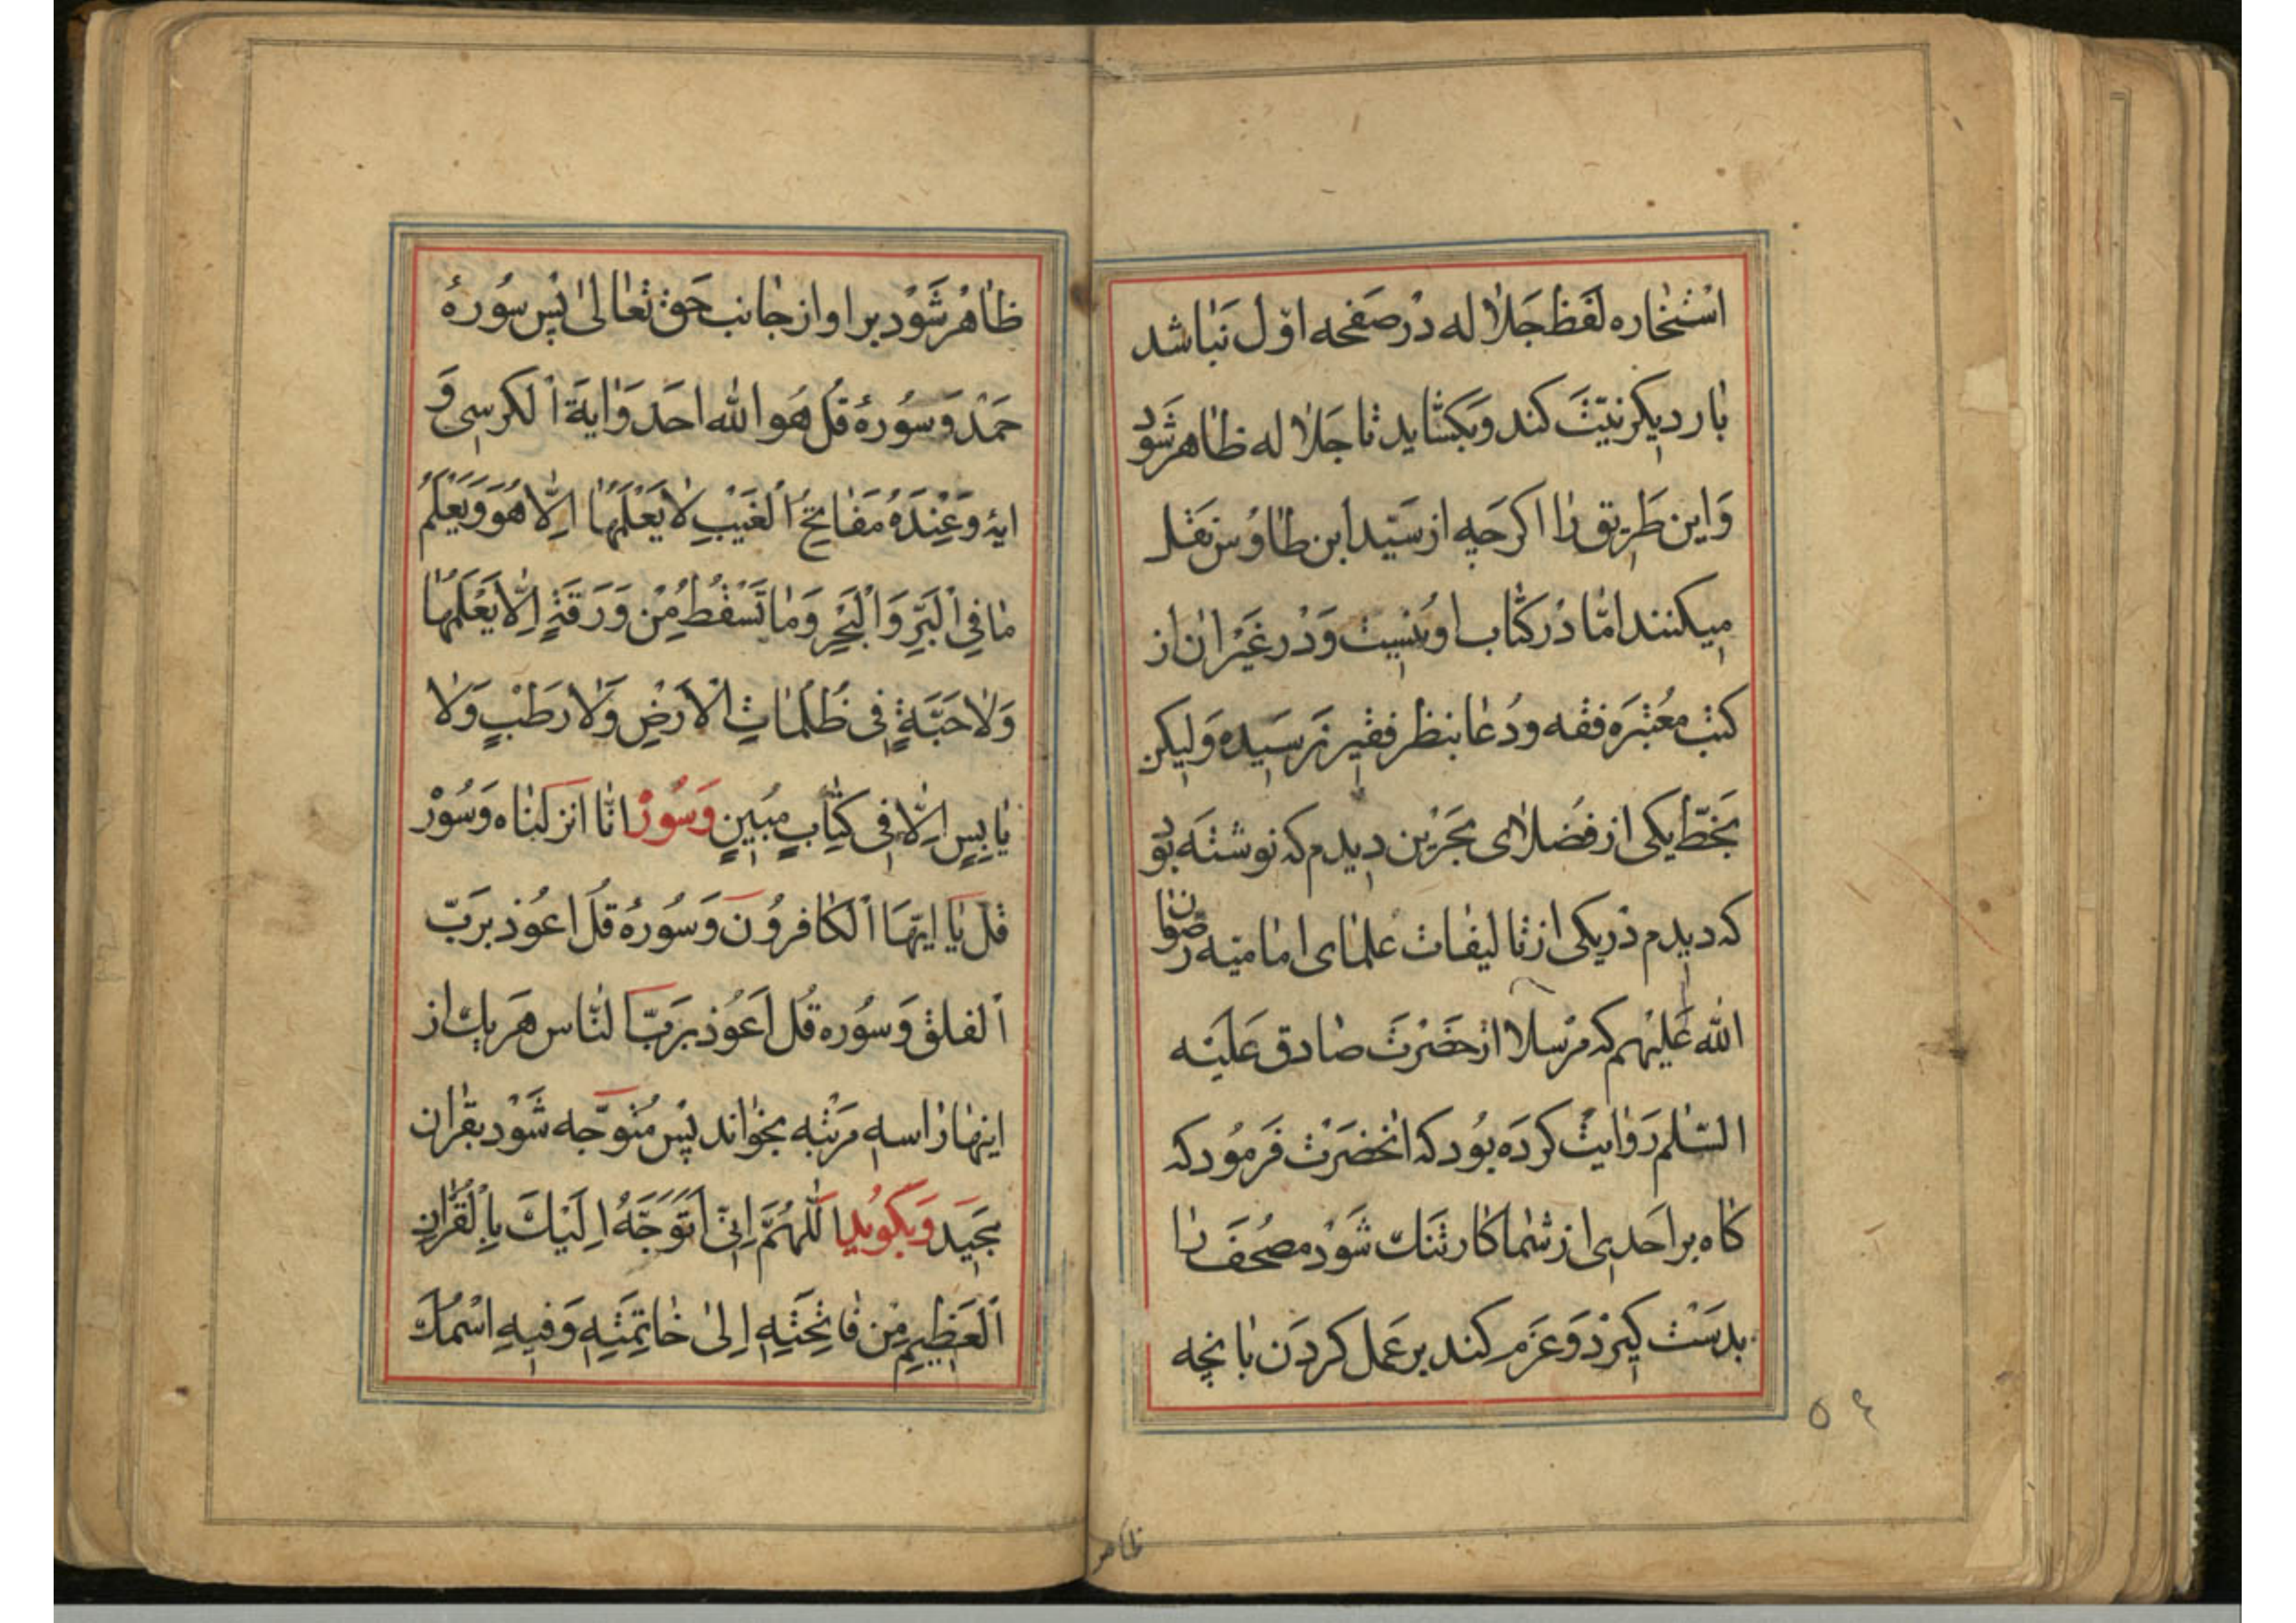 استخاره لفظ جلاله در صفحه اول نباشد
بار دیکر نیت کند وبکشاید تا جلاله ظاهر شود
واین طریق را اکرچه از سید ابن طاوس نقل
میکنند اما در کتاب او نیست ودر غیر ان از
کتب معتبره فقه ودعا بنظر فقیر نرسیده ولیکن
بخط یکی از فضلای بحرین دیدم که نوشته بود
که دیدم در یکی از تالیفات علمای امامیه رضوان
الله علیهم که مرسلا از حضرت صادق علیه
السلم روایت کرده بود که انحضرت فرمود که
کاه بر احدی از شما کار تنک شود مصحف را
بدست کیرد وعزم کند بر عمل کردن بانچه
۵۴
ظاهر
ظاهر شود بر او از جانب حق تعالی پس سوره
حمد وسورهٔ قل هو الله احد وایة الکرسی و
ایهٔ وَعِنْدَهُ مَفَاتِحُ الْغَیْبِ لا یَعْلَمُهَا اِلّا هُوَ وَیَعْلَمُ
مَا فِی الْبَرِّ وَالْبَحْرِ وَمَا تَسْقُطُ مِنْ وَرَقَةٍ اِلّا یَعْلَمُهَا
وَلا حَبَّةٍ فِی ظُلُمَاتِ الْاَرْضِ وَلا رَطْبٍ وَلا
یَابِسٍ اِلّا فِی کِتَابٍ مُبِینٍ وسور انا انزلناه وسور
قل یا ایها الکافرون وسورهٔ قل اعوذ برب
الفلق وسوره قل اعوذ برب الناس هر یک از
اینها را سه مرتبه بخواند پس متوجه شود بقران
مجید وبکوید اَللّهُمَّ اِنِّی اَتَوَجَّهُ اِلَیْکَ بِالْقُرْانِ
الْعَظِیمِ مِنْ فَاتِحَتِهِ اِلیٰ خَاتِمَتِهِ وَفِیهِ اسْمُکَ